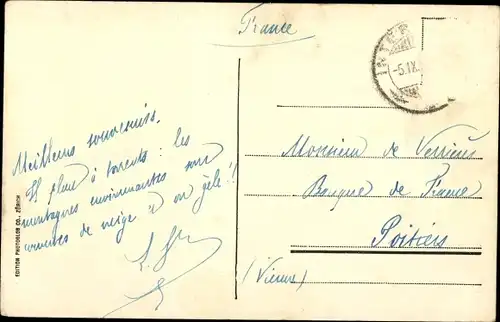 France
INTER
-5.IX.
Meilleurs souvenirs.
Il pleut à torrents : les
montagnes environnantes sont
couvertes de neige & on gèle !!
Monsieur de Verrières
Banque de France
Poitiers
(Vienne)
EDITION PHOTOGLOB CO., ZÜRICH